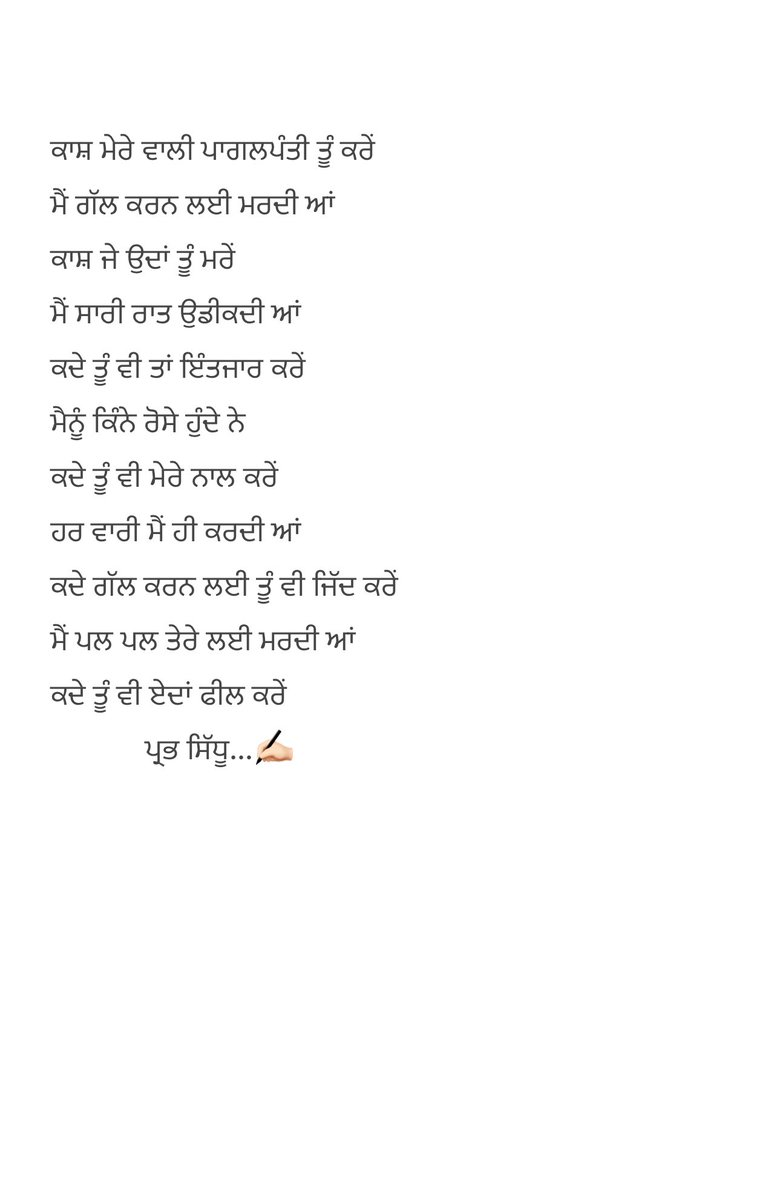 ਕਾਸ਼ ਮੇਰੇ ਵਾਲੀ ਪਾਗਲਪੰਤੀ ਤੂੰ ਕਰੇਂ
ਮੈਂ ਗੱਲ ਕਰਨ ਲਈ ਮਰਦੀ ਆਂ
ਕਾਸ਼ ਜੇ ਉਦਾਂ ਤੂੰ ਮਰੇਂ
ਮੈਂ ਸਾਰੀ ਰਾਤ ਉਡੀਕਦੀ ਆਂ
ਕਦੇ ਤੂੰ ਵੀ ਤਾਂ ਇੰਤਜਾਰ ਕਰੇਂ
ਮੈਨੂੰ ਕਿੰਨੇ ਰੋਸੇ ਹੁੰਦੇ ਨੇ
ਕਦੇ ਤੂੰ ਵੀ ਮੇਰੇ ਨਾਲ ਕਰੇਂ
ਹਰ ਵਾਰੀ ਮੈਂ ਹੀ ਕਰਦੀ ਆਂ
ਕਦੇ ਗੱਲ ਕਰਨ ਲਈ ਤੂੰ ਵੀ ਜਿੱਦ ਕਰੇਂ
ਮੈਂ ਪਲ ਪਲ ਤੇਰੇ ਲਈ ਮਰਦੀ ਆਂ
ਕਦੇ ਤੂੰ ਵੀ ਏਦਾਂ ਫੀਲ ਕਰੇਂ
ਪ੍ਰਭ ਸਿੱਧੂ...✍🏻